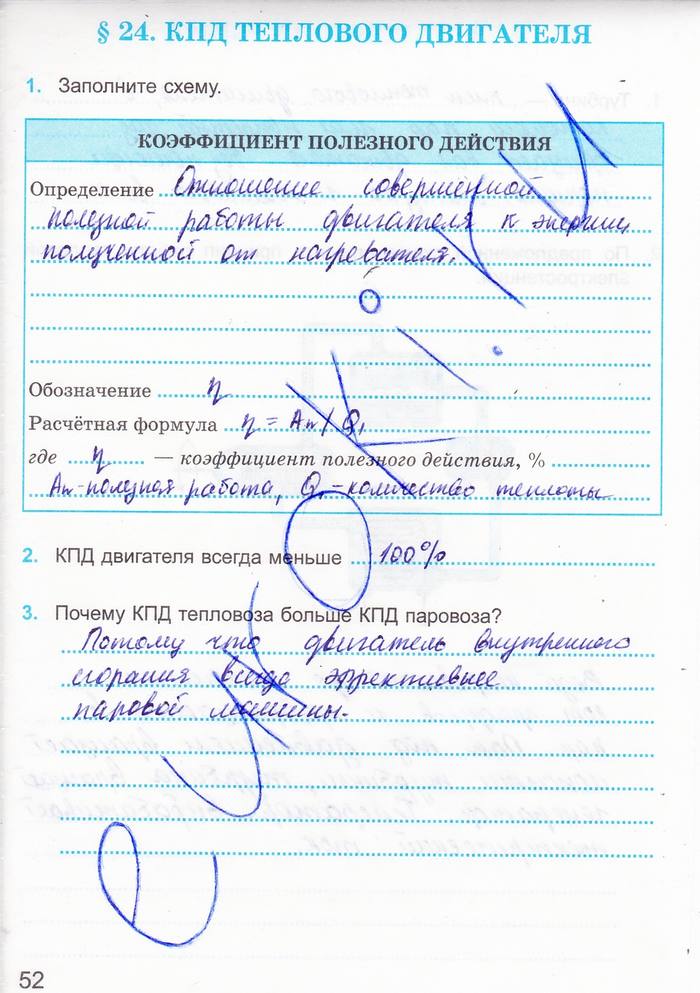 § 24. КПД ТЕПЛОВОГО ДВИГАТЕЛЯ
1. Заполните схему.
КОЭФФИЦИЕНТ ПОЛЕЗНОГО ДЕЙСТВИЯ
Определение Отношение совершённой
полезной работы двигателя к энергии
полученной от нагревателя.
Обозначение η
Расчётная формула η = Aп / Q₁
где η — коэффициент полезного действия, %
Aп-полезная работа, Q₁-количество теплоты
2. КПД двигателя всегда меньше 100%
3. Почему КПД тепловоза больше КПД паровоза?
Потому что двигатель внутреннего
сгорания всегда эффективнее
паровой машины.
52